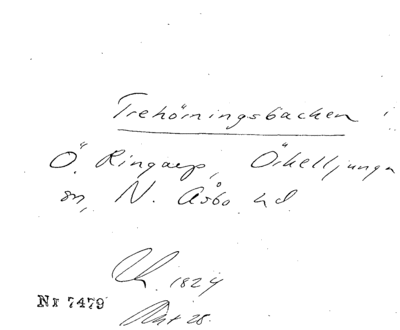 Trehörningsbacken i
Ö. Ringarp, Örkelljunga
sn, N. Åsbo hd.
Ch. 1824
Akt 28.
Nr 7479